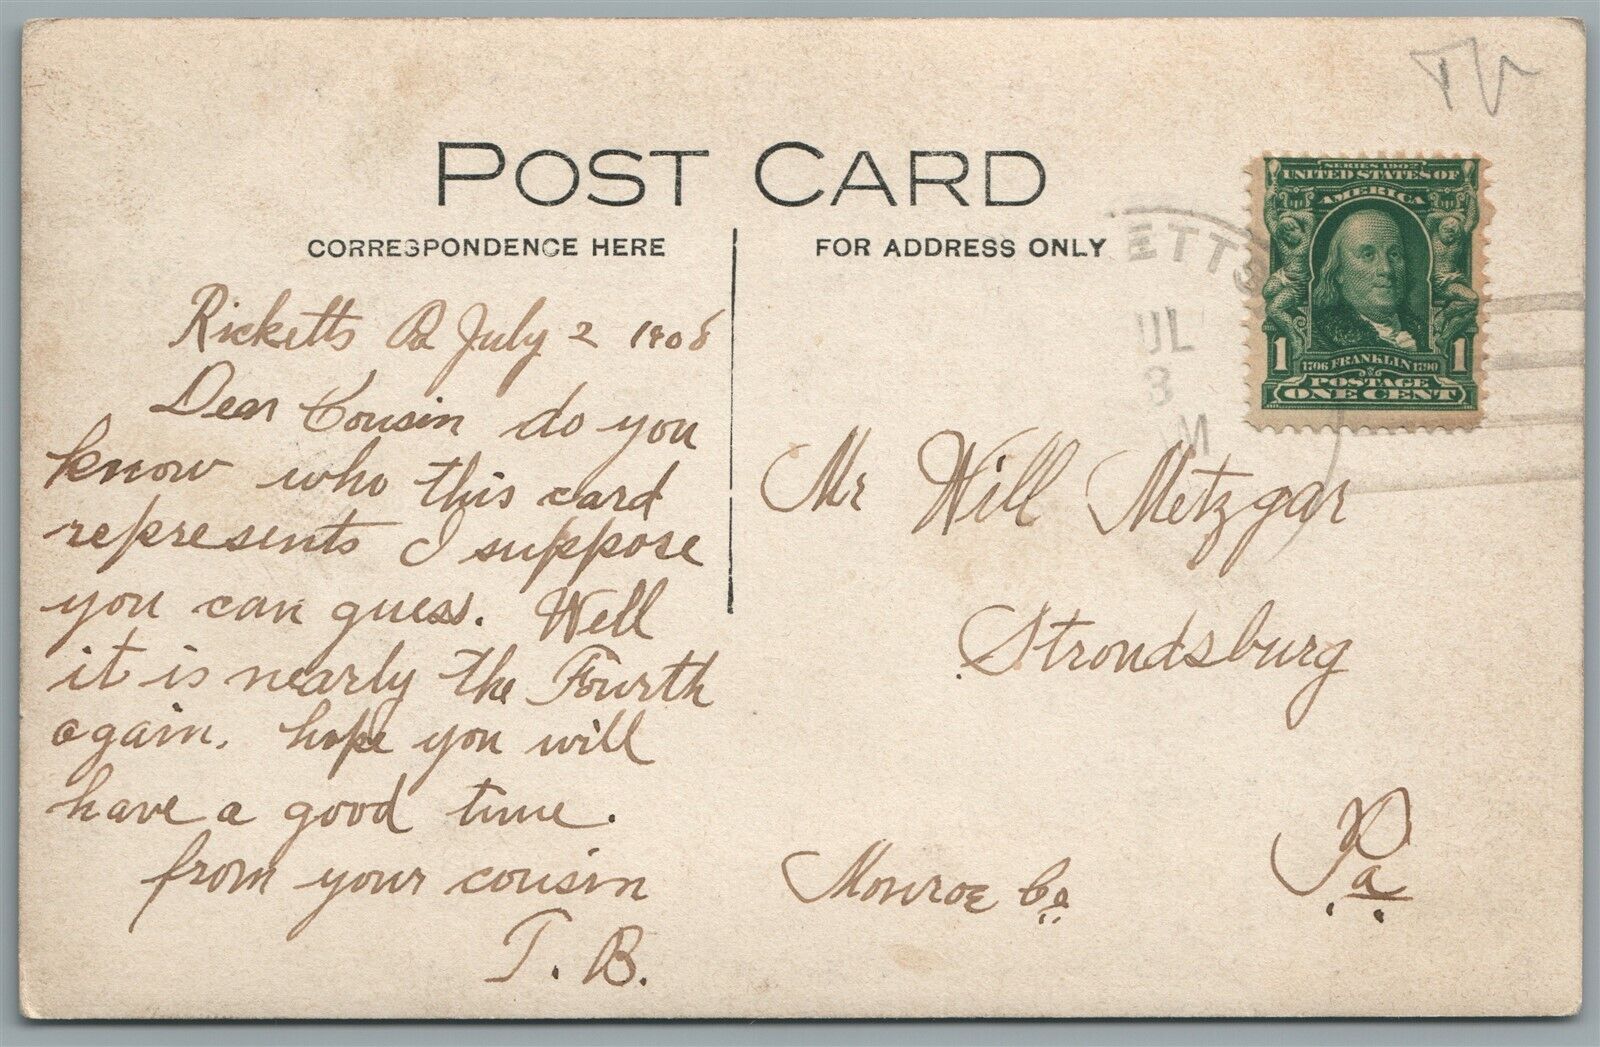 POST CARD
CORRESPONDENCE HERE
FOR ADDRESS ONLY
ETTS
UL
3
M
SERIES 1902
UNITED STATES OF
AMERICA
1 1706 FRANKLIN 1790 1
POSTAGE
ONE CENT
Ricketts Pa July 2 1908
Dear Cousin do you
know who this card
represents I suppose
you can guess. Well
it is nearly the Fourth
again. hope you will
have a good time.
from your cousin
T. B.
Mr Will Metzgar
Strondsburg
Monroe Co
Pa